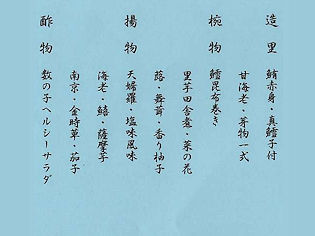 造里
鮪赤身・真鱈子付
甘海老・芽物一式
椀物
鱈昆布巻き
里芋田舎煮・菜の花
蕗・舞茸・香り柚子
揚物
天婦羅・塩味風味
海老・鱚・薩摩芋
南京・金時草・茄子
酢物
数の子ヘルシーサラダ